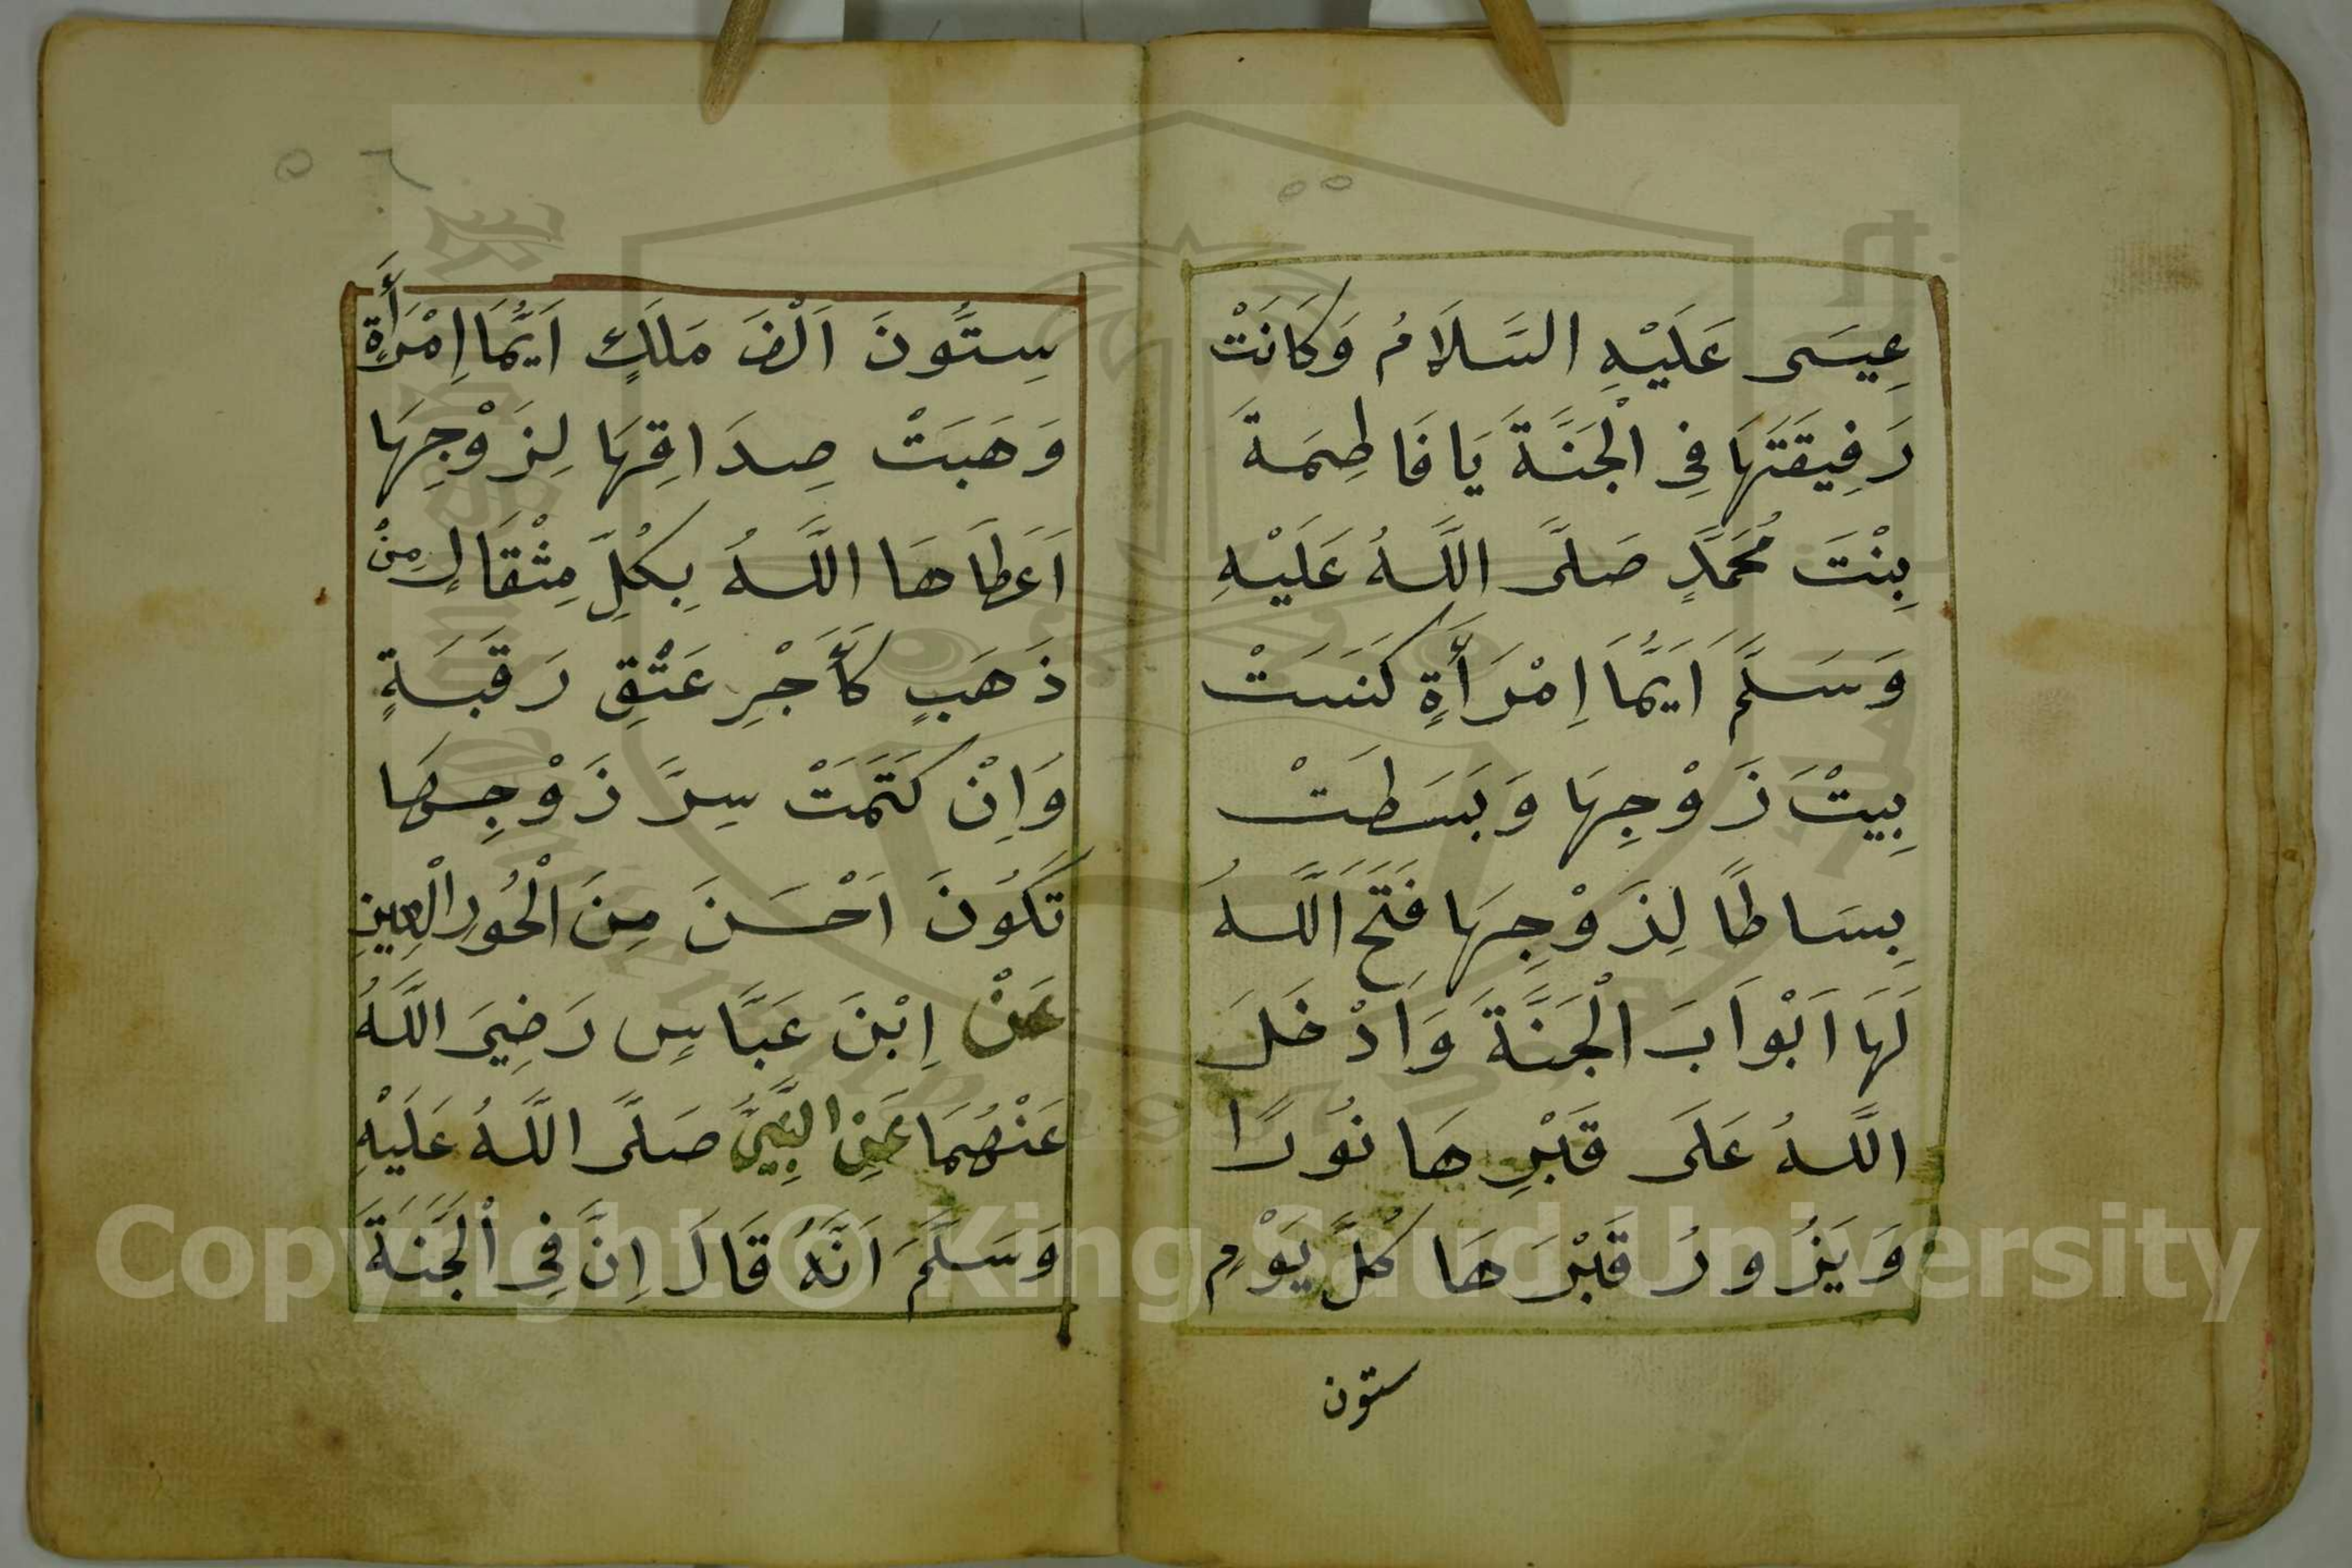 ٥٥
عِيسَى عَلَيْهِ السَّلَامُ وَكَانَتْ
رَفِيقَتَهَا فِي الْجَنَّةَ يَا فَاطِمَةَ
بِنْتَ مُحَمَّدٍ صَلَّى اللَّهُ عَلَيْهِ
وَسَلَّمَ اَيُّمَا اِمْرَأَةٍ كَنَسَتْ
بِيتْ زَوْجِهَا وَبَسَطَتْ
بِسَاطًا لِذَوْجِهَا فَتَحَ اللَّهُ
لَهَا اَبْوَابَ الْجَنَّةَ وَاَدْخَلَ
اللَّهُ عَلَى قَبْرِهَا نُورًا
وَيَزُورُ قَبْرَهَا كُلَّ يَوْمٍ
ستون
٥٦
سِتُّونَ اَلْفَ مَلَكٍ اَيُّمَا اِمْرَأَةٍ
وَهَبَتْ صِدَاقِهَا لِزَوْجِهَا
اَعَطَاهَا اللَّهُ بِكُلِّ مِثْقَالٍ مِنْ
ذَهَبٍ كَأَجْرِ عَتْقِ رَقَبَةٍ
وَاِنْ كَتَمَتْ سِرَّ زَوْجِهَا
تَكُونَ اَحْسَنَ مِنَ الْحُورِ الْعِينِ
عَنْ اِبْنَ عَبَّاسٍ رَضِيَ اللَّهُ
عَنْهُمَا عَنِ النَّبِيِّ صَلَّى اللَّهُ عَلَيْهِ
وَسَلَّمَ اَنَّهُ قَالَ اِنَّ فِي الْجَنَّةَ
Copyright © King Saud University